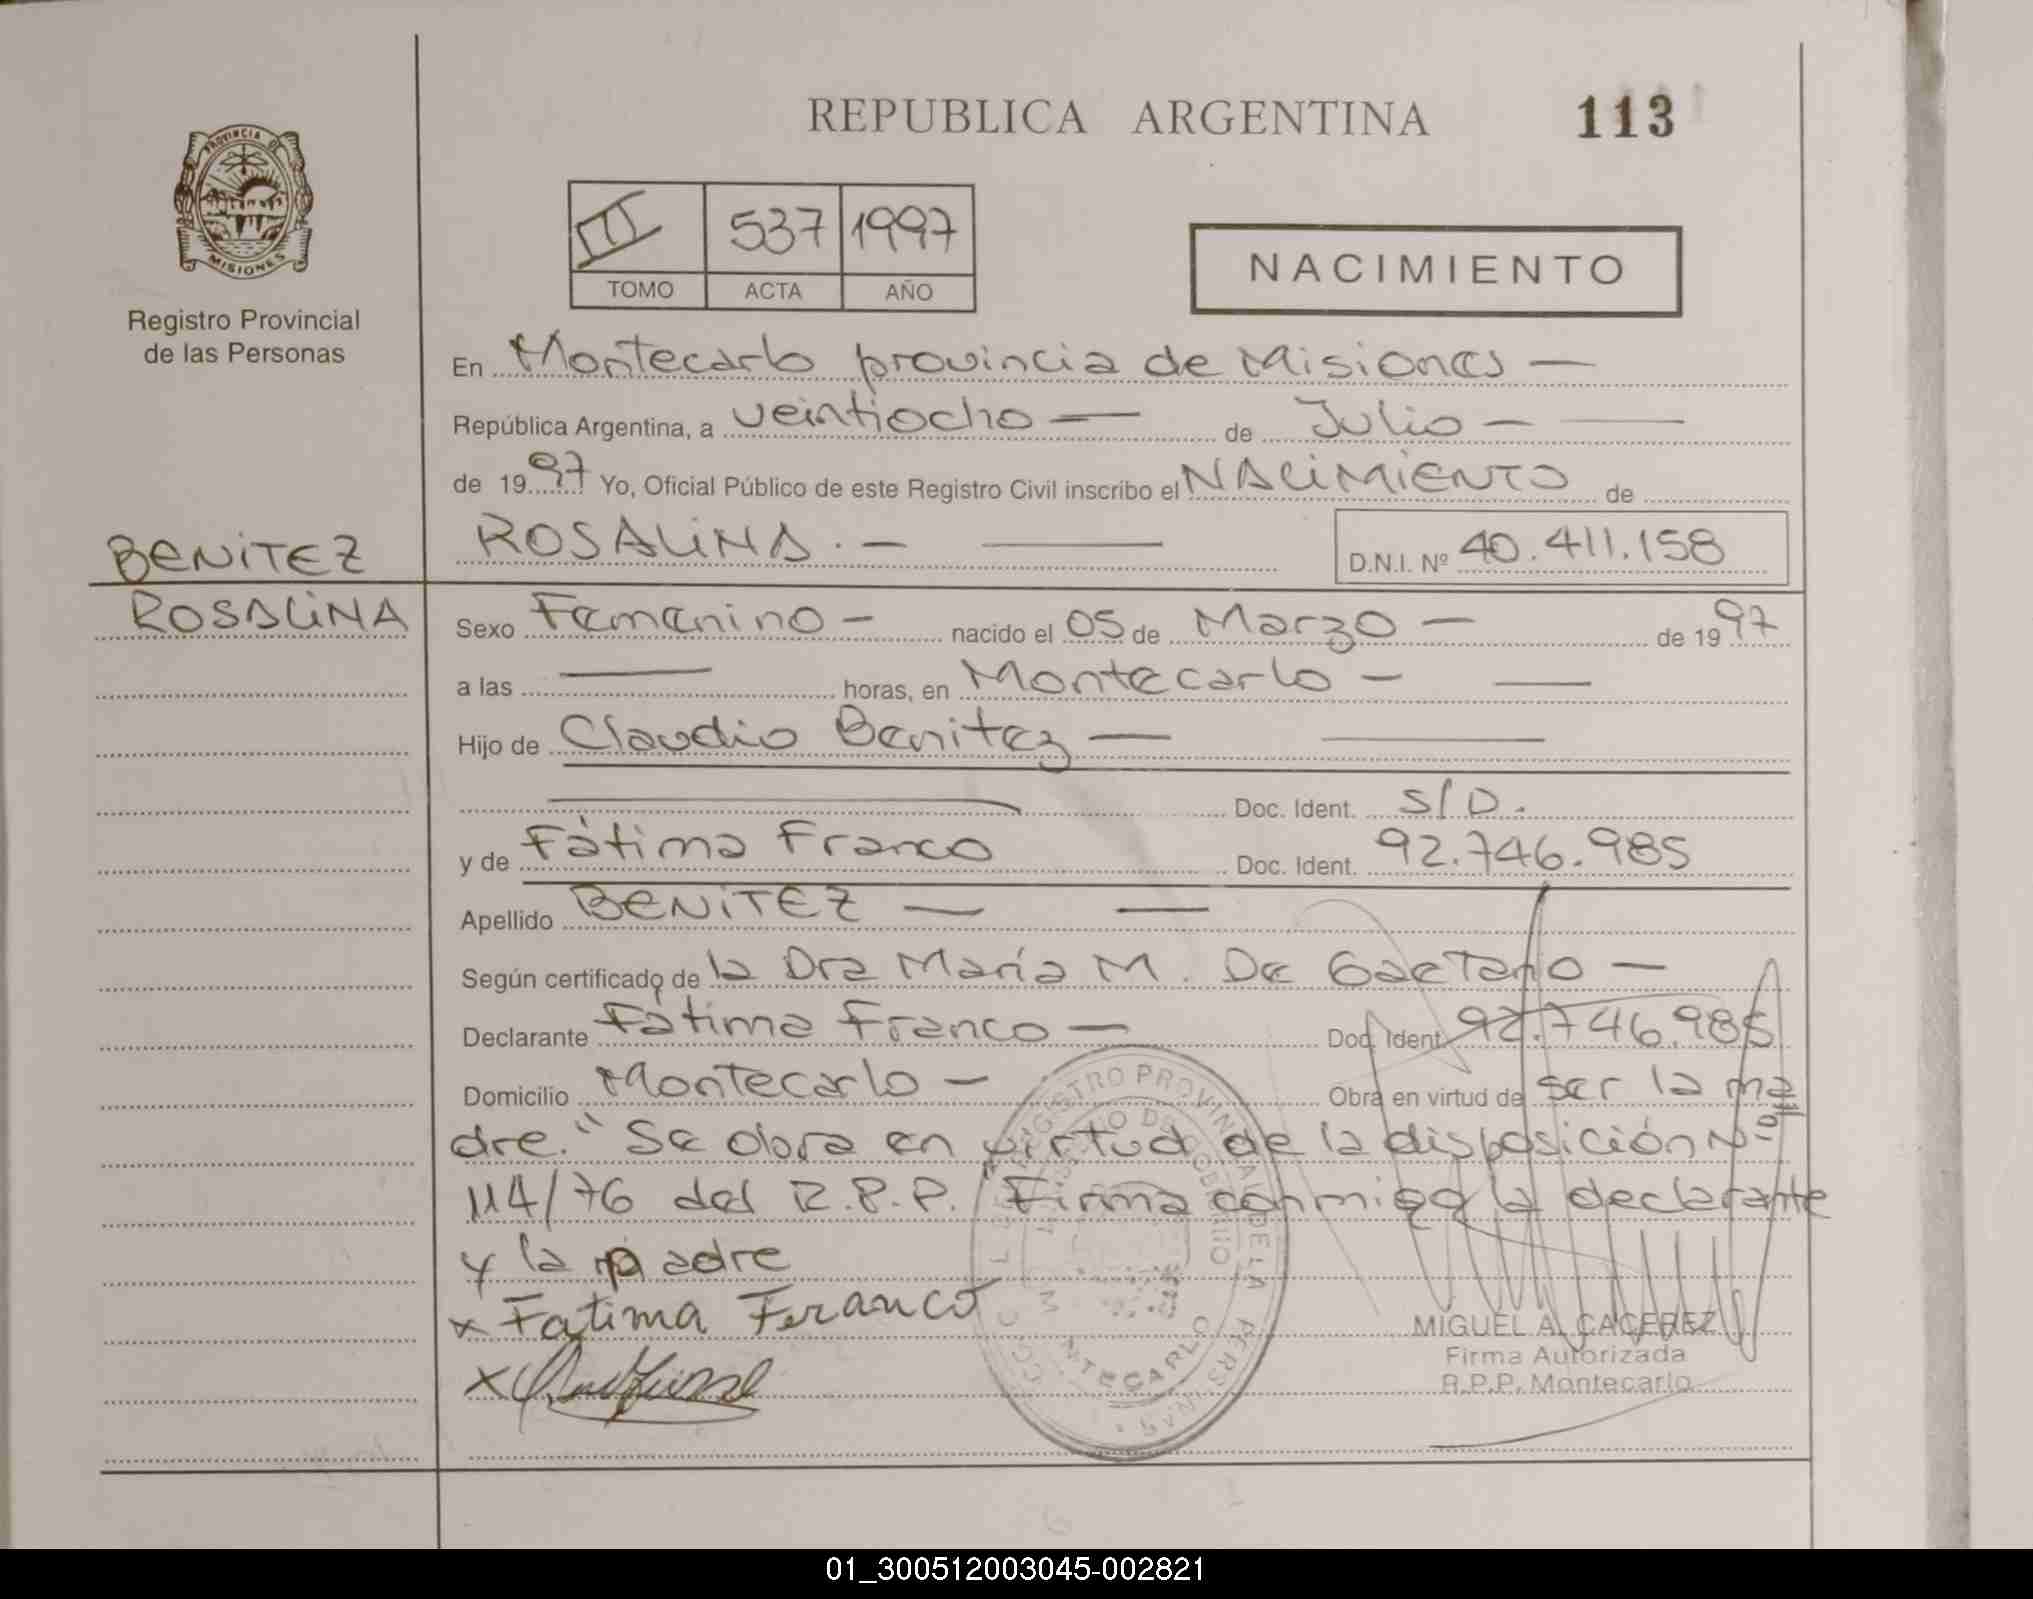 REPUBLICA ARGENTINA 113
PROVINCIA DE
MISIONES
Registro Provincial
de las Personas
III 537 1997
TOMO ACTA AÑO
NACIMIENTO
En Montecarlo provincia de Misiones —
República Argentina, a veintiocho — de Julio —
de 1997 Yo, Oficial Público de este Registro Civil inscribo el NACIMIENTO de
ROSALINA. — D.N.I. Nº 40.411.158
BENITEZ
ROSALINA
Sexo Femenino — nacido el 05 de Marzo — de 1997
a las — horas, en Montecarlo —
Hijo de Claudio Benitez —
Doc. Ident. S/D.
y de Fátima Franco Doc. Ident. 92.746.985
Apellido BENITEZ —
Según certificado de la Dra María M. De Gaetano —
Declarante Fátima Franco — Doc. Ident. 92.746.985
Domicilio Montecarlo — Obra en virtud de ser la ma
dre. "Se obra en virtud de la disposición Nº
114/76 del R.P.P." Firma conmigo la declarante
y la padre
x Fatima Franco
x
REGISTRO PROVINCIAL DE LAS PERSONAS
MONTECARLO
MIGUEL A. CACEREZ
Firma Autorizada
R.P.P. Montecarlo
01_300512003045-002821